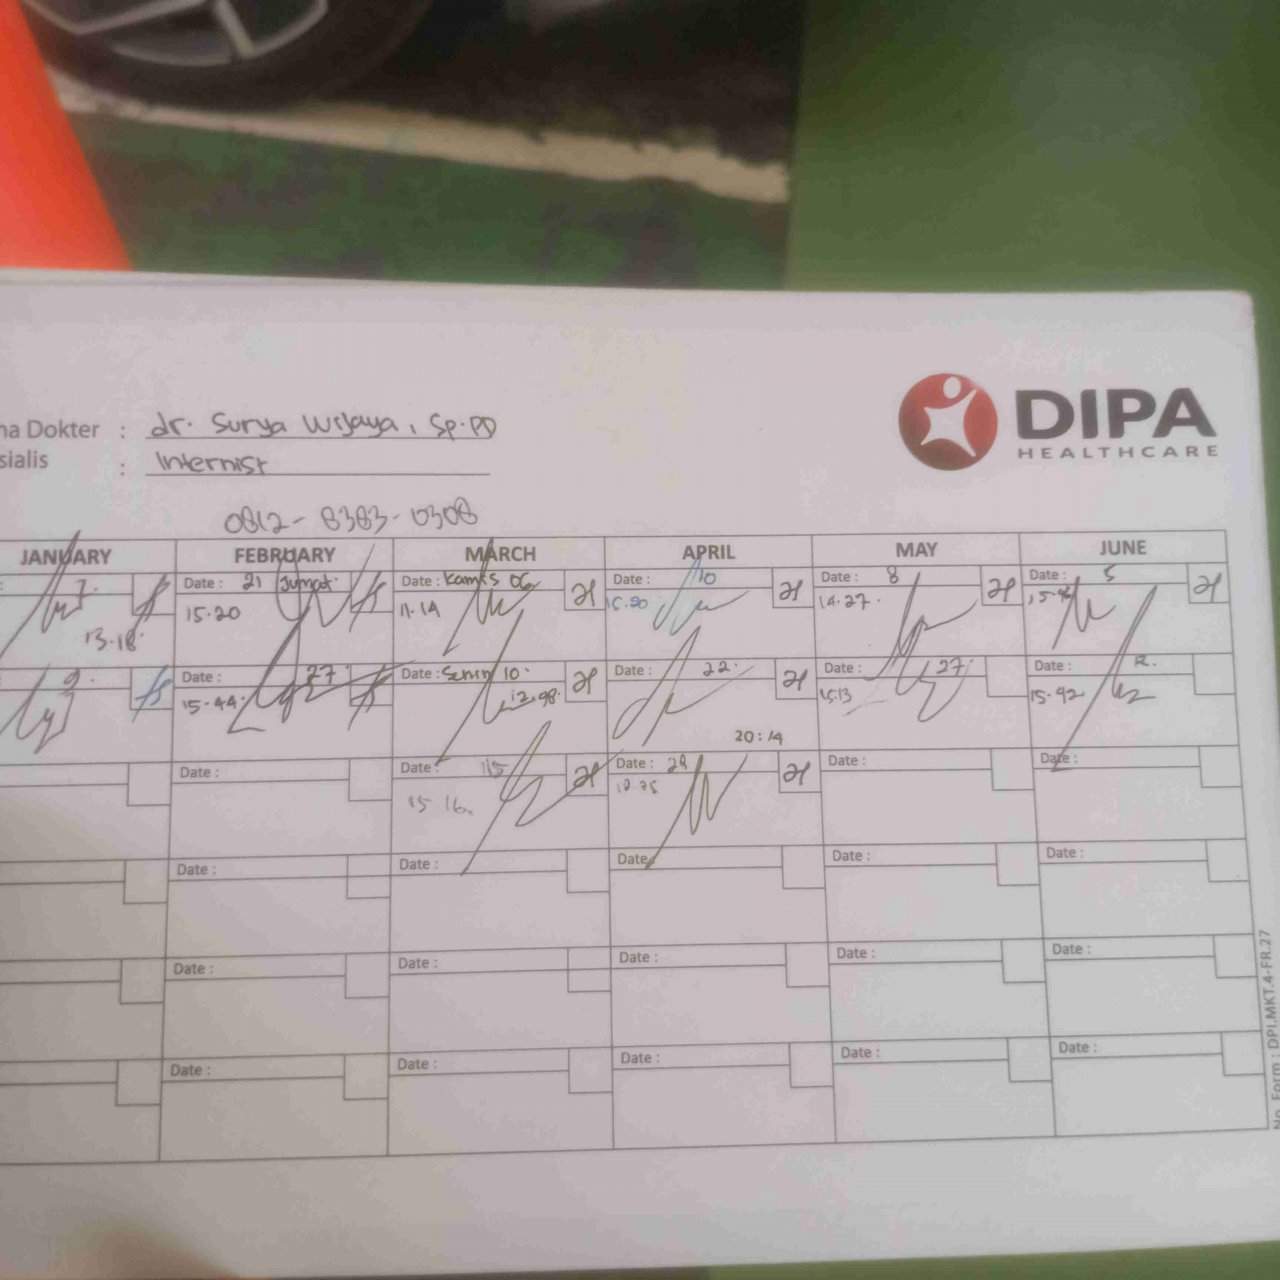 DIPA
HEALTHCARE
na Dokter : dr. Surya Wijaya, Sp.PD
sialis : Internist
0812-8383-0308
JANUARY FEBRUARY MARCH APRIL MAY JUNE
7. Date : 21 Jumat Date : Kamis 06 Date : 10 Date : 8 Date : 5
13.18 15.20 11.14 14.27
9. Date : 27 Date : Senin 10 Date : 22 Date : 27 Date :
15.44 15.13 15.42
20:14
Date : Date : 15 Date : Date : Date :
15 16
Date : Date : Date Date : Date :
Date : Date : Date : Date : Date :
Date : Date : Date : Date : Date :
No. Form : DPI.MKT.4-FR.27